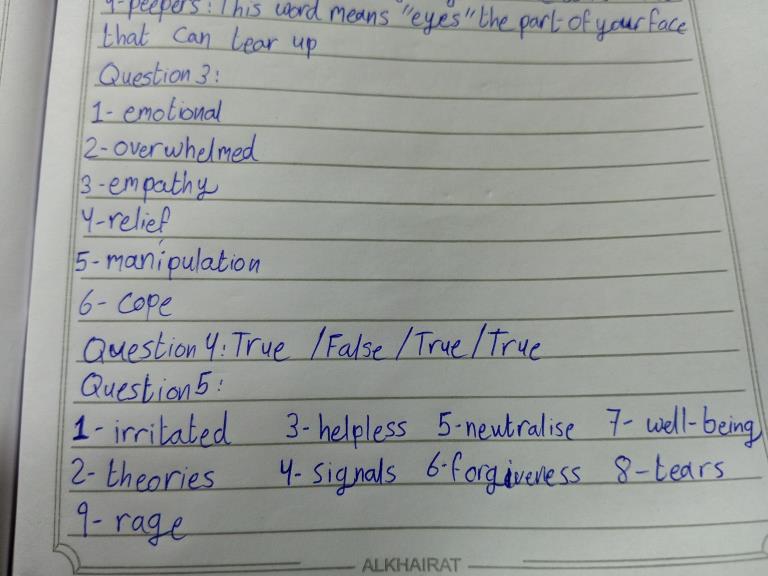 4-peepers: This word means "eyes" the part of your face
that can tear up
Question 3:
1- emotional
2-overwhelmed
3-empathy
4-relief
5-manipulation
6- cope
Question 4: True /False /True/True
Question 5:
1- irritated 3-helpless 5-neutralise 7- well-being
2- theories 4- signals 6-forgiveness 8-tears
9- rage
ALKHAIRAT